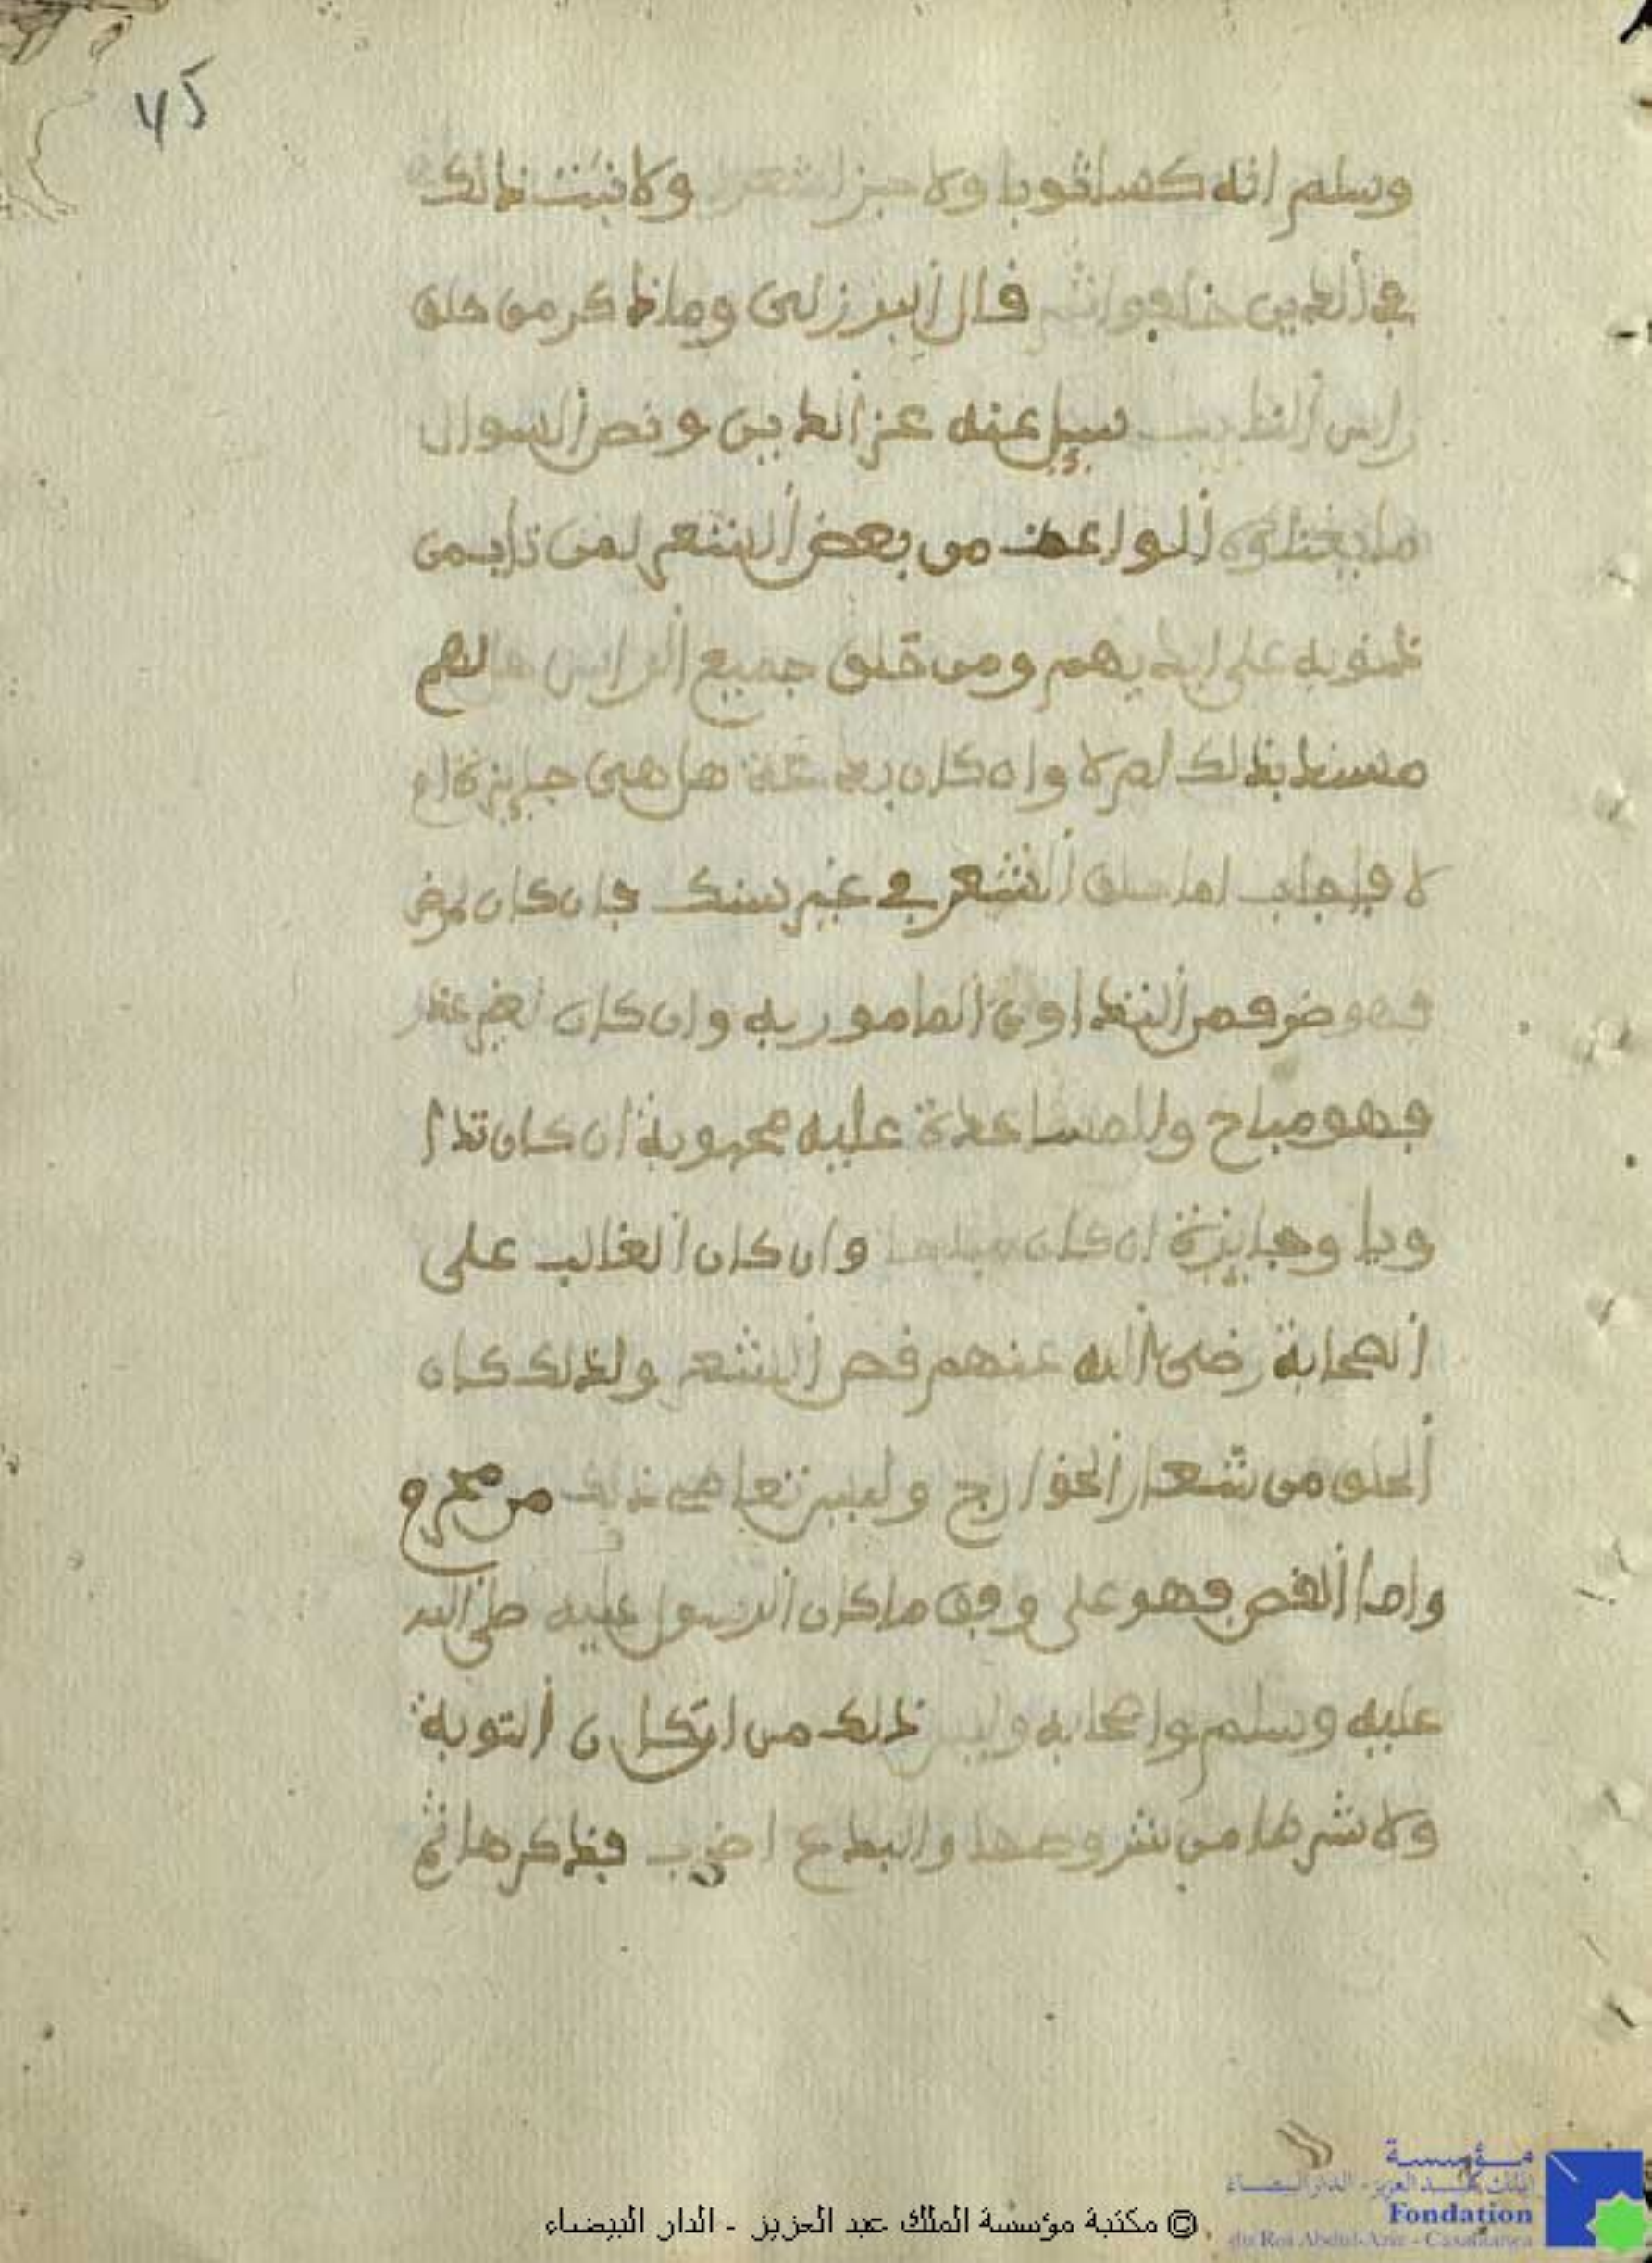 45
وسلم انه كسا ثوبا ولا جز شعر ولا ثبت ذالك
في الذين خلفوا ثم قال البرزلي وما ذكر من حلق
راس التايب سيل عنه عز الدين ونص السوال
ما يفعلوه الواعظ من بعض الشعر لمن تاب من
ذنوبه على ايديهم ومن حلق جميع الراس هل لهم
مستند بذلك ام لا وان كان بدعة هل هي جايزة ام
لا فاجاب اما حلق الشعر في غير نسك فان كان لمرض
فهو ضرب من التداوي المامور به وان كان لغير عذر
فهو مباح والمساعدة عليه محبوبة ان كان تدا
ويا وجايزة ان كان مباحا وان كان الغالب على
الصحابة رضي الله عنهم قص الشعر ولذلك كان
الحلق من شعار الخوارج وليس تعاطي ذلك من محرم
واما القص فهو على وفق ما كان الرسول عليه صلى الله
عليه وسلم واصحابه وليس ذلك من اركان التوبة
ولا شرطا من شروطها والبدع اضرب فذكرها ثم
© مكتبة مؤسسة الملك عبد العزيز - الدار البيضاء
مؤسسة
الملك عبد العزيز - الدار البيضاء
Fondation
du Roi Abdul-Aziz - Casablanca